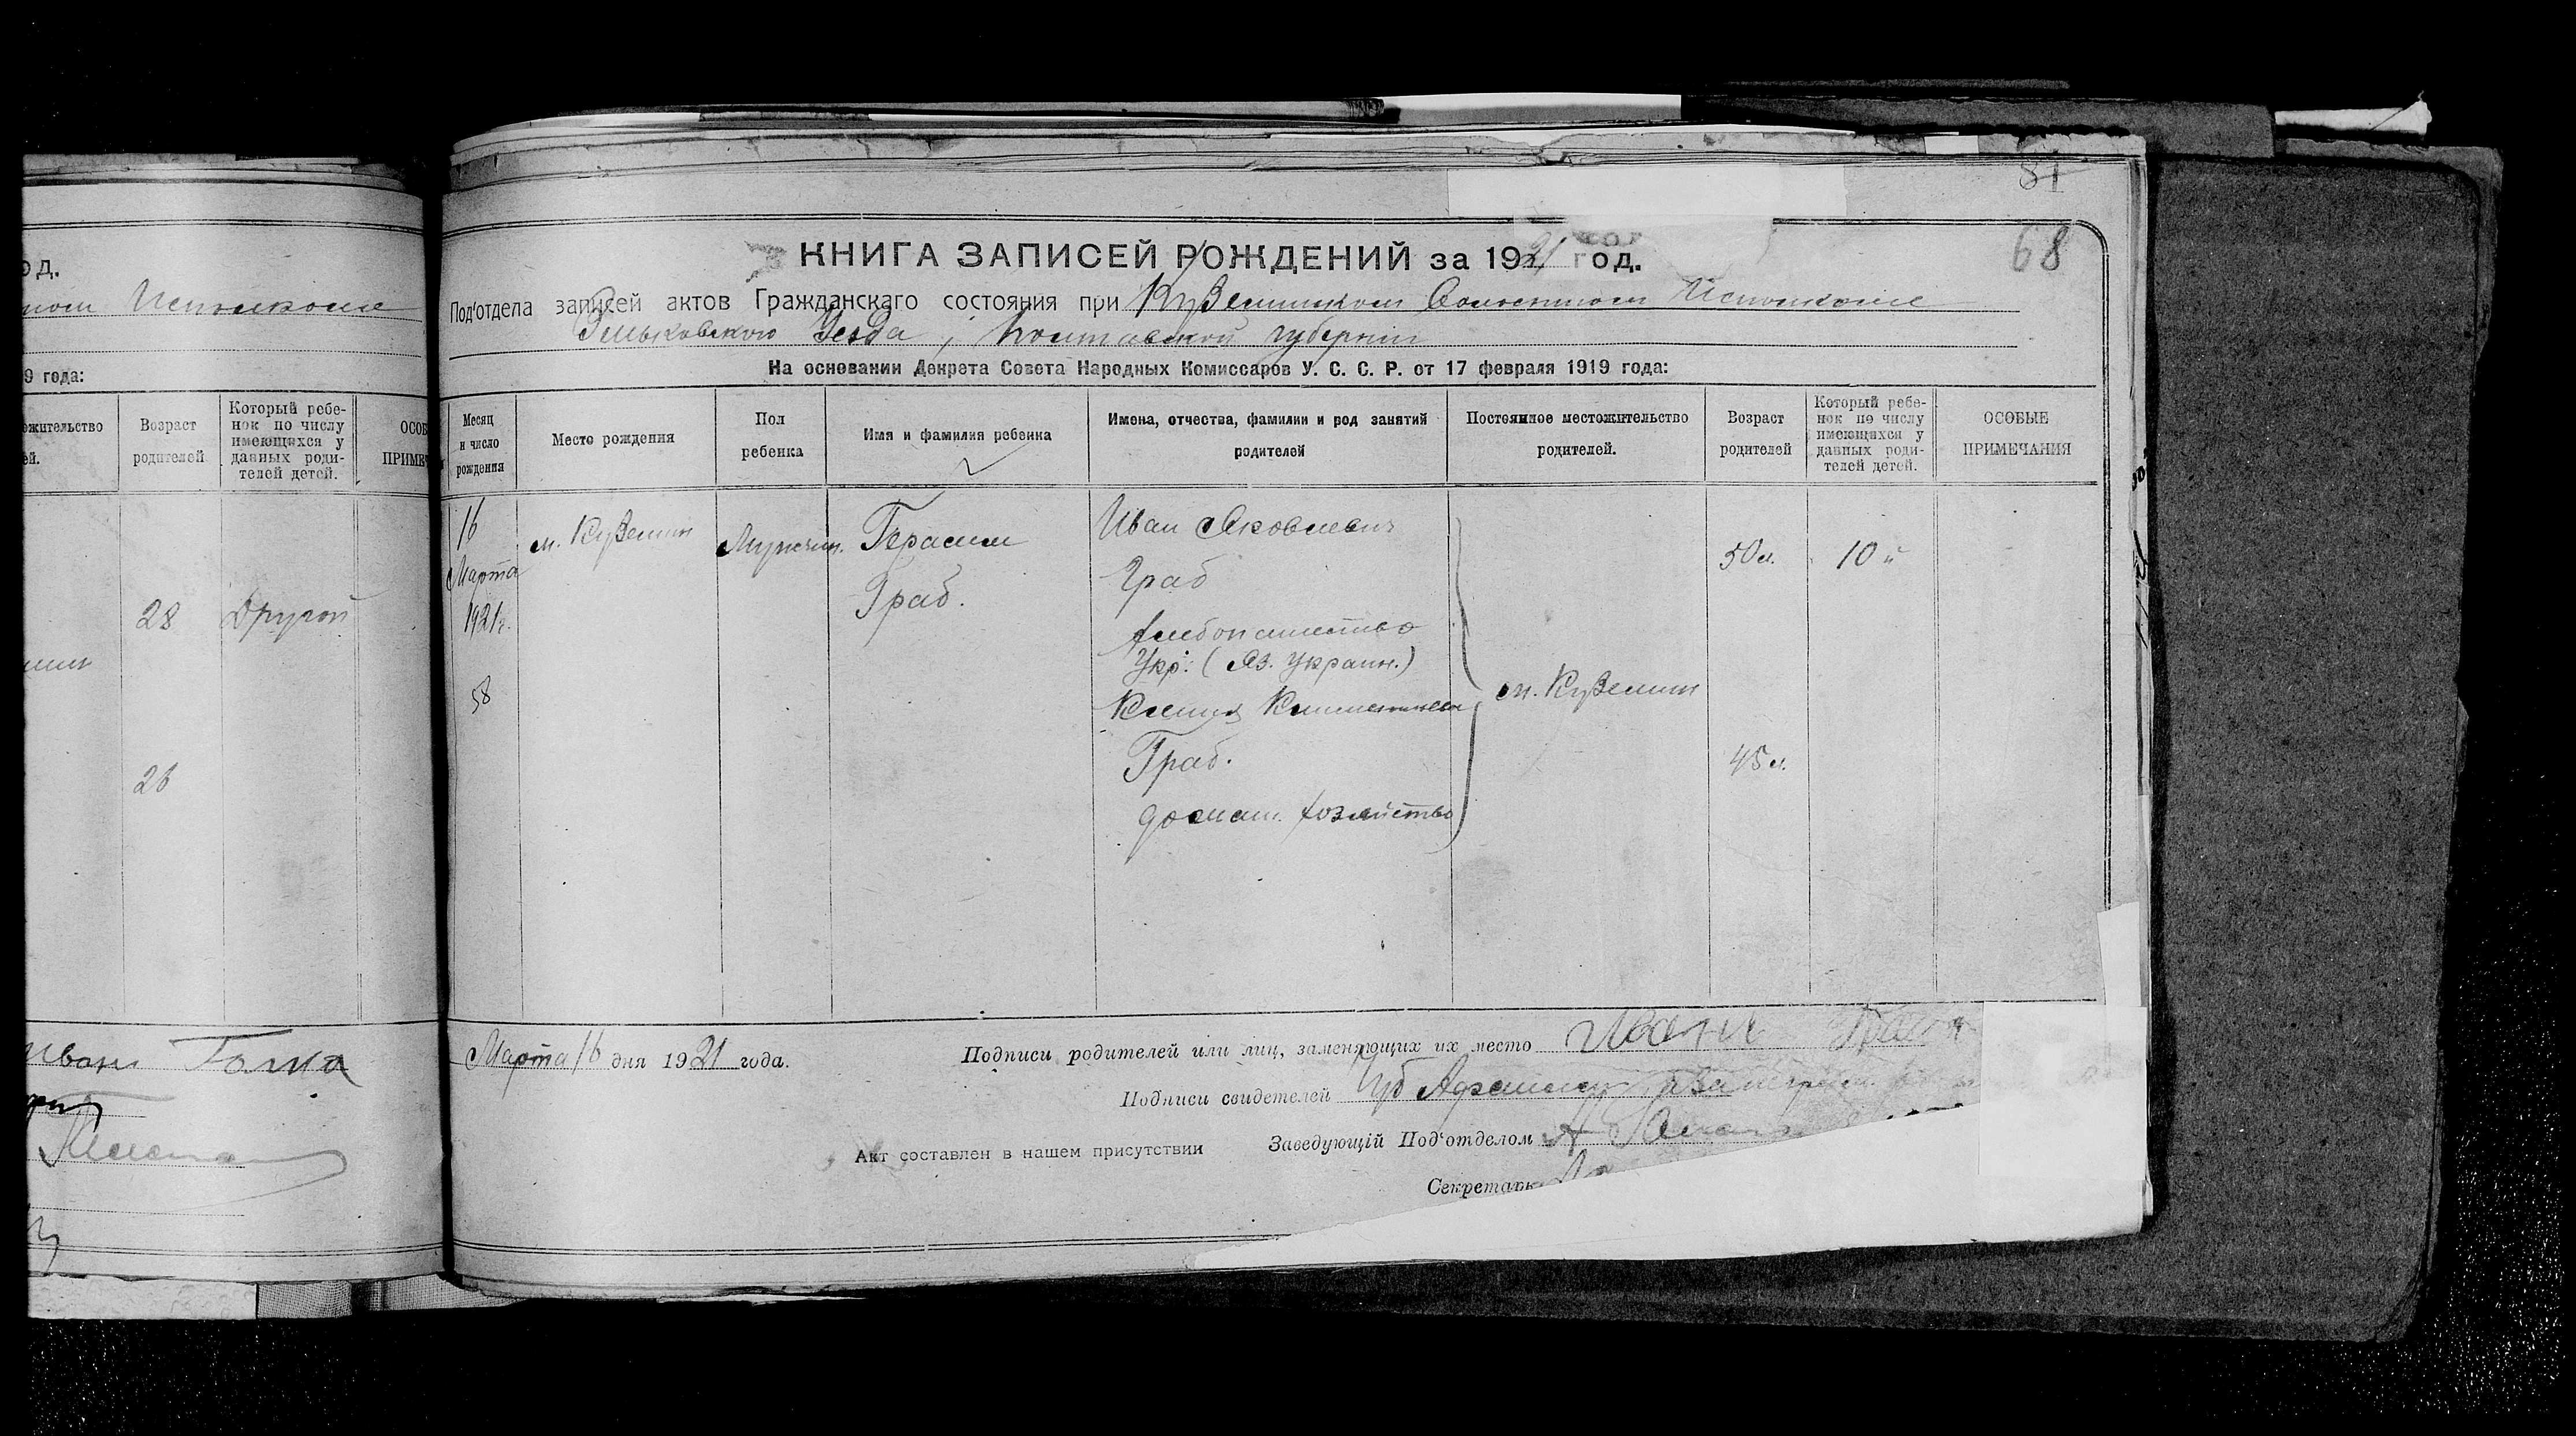 од.
ном Исполкоме
9 года:
ожительство
ей.
Возраст
родителей
Который ребе-
нок по числу
имеющихся у
данных роди-
телей детей.
ОСОБ
ПРИМЕЧ
28
Другой
26
Иван
81
68
КНИГА ЗАПИСЕЙ РОЖДЕНИЙ за 1921 год.
Под'отдела записей актов Гражданскаго состояния при Куземинском Волостном Исполкоме
Зеньковского Уезда, Полтавской губернии
На основании Декрета Совета Народных Комиссаров У. С. С. Р. от 17 февраля 1919 года:
Месяц
и число
рождения
Место рождения
Пол
ребенка
Имя и фамилия ребенка
Имена, отчества, фамилии и род занятий
родителей
Постоянное местожительство
родителей.
Возраст
родителей
Который ребе-
нок по числу
имеющихся у
данных роди-
телей детей.
ОСОБЫЕ
ПРИМЕЧАНИЯ
16
Марта
1921г.
58
м. Куземин
Мужчин.
Герасим
Граб.
Иван Яковлевич
Граб
хлебопашество
Укр. (Яз. Украин.)
Ксения Климентиевн
Граб.
домаш. хозяйство
м. Куземин
50 л.
45 л.
10 й
Марта 16 дня 1921 года.
Подписи родителей или лиц, заменяющих их место Иван Граб
Подписи свидетелей
Акт составлен в нашем присутствии
Заведующій Под'отделом А
Секретарь